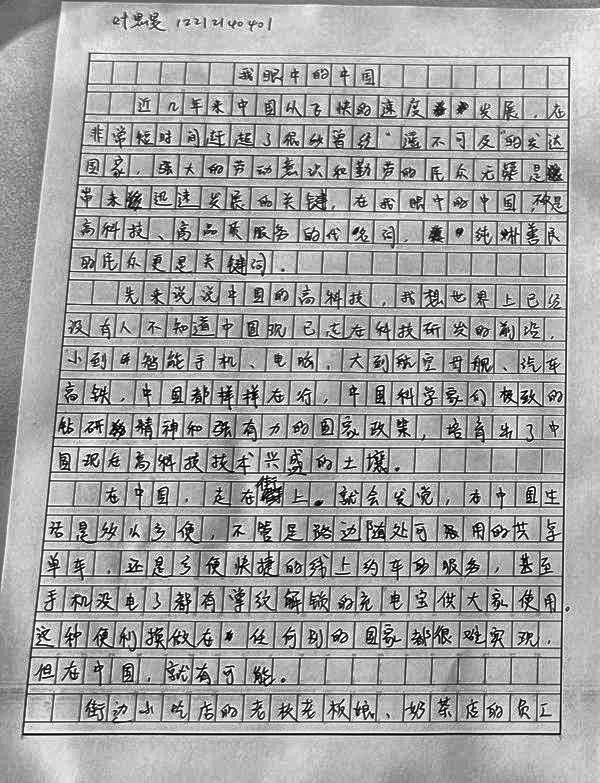 叶思曼 12212140401
我眼中的中国
近几年来中国以飞快的速度发展，在
非常短时间赶超了很多曾经“遥不可及”的发达
国家，强大的劳动意识和勤劳的民众无疑是
带来迅速发展的关键，在我眼中的中国，是
高科技、高品质服务的代名词，纯朴善良
的民众更是关键词。
先来说说中国的高科技，我想世界上已经
没有人不知道中国现已走在科技研发的前沿，
小到智能手机、电脑，大到航空母舰、汽车
高铁，中国都样样在行，中国科学家们极致的
钻研精神和强有力的国家政策，培育出了中
国现在高科技技术兴盛的土壤。
在中国，走在街上，就会发觉，在中国生
活是多么方便，不管是路边随处可用的共享
单车，还是方便快捷的线上约车的服务，甚至
手机没电了都有学纹解锁的充电宝供大家使用。
这种便利操做在任何别的国家都很难实现，
但在中国，就有可能。
街边小吃店的老板老板娘、奶茶店的员工